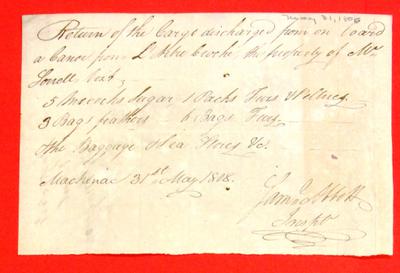 May 31, 1808
Return of the Cargo discharged from on board
a Canoe from L'Arbre Croche, the property of Mr
Viz.t
5 Mococks Sugar 1 Packs Furs & Peltries
3 Bags feathers 6 Bags Furs
The Baggage & Sea Stores &c.
Mackinac 31st May 1808.
Sam Abbott
Inspt.